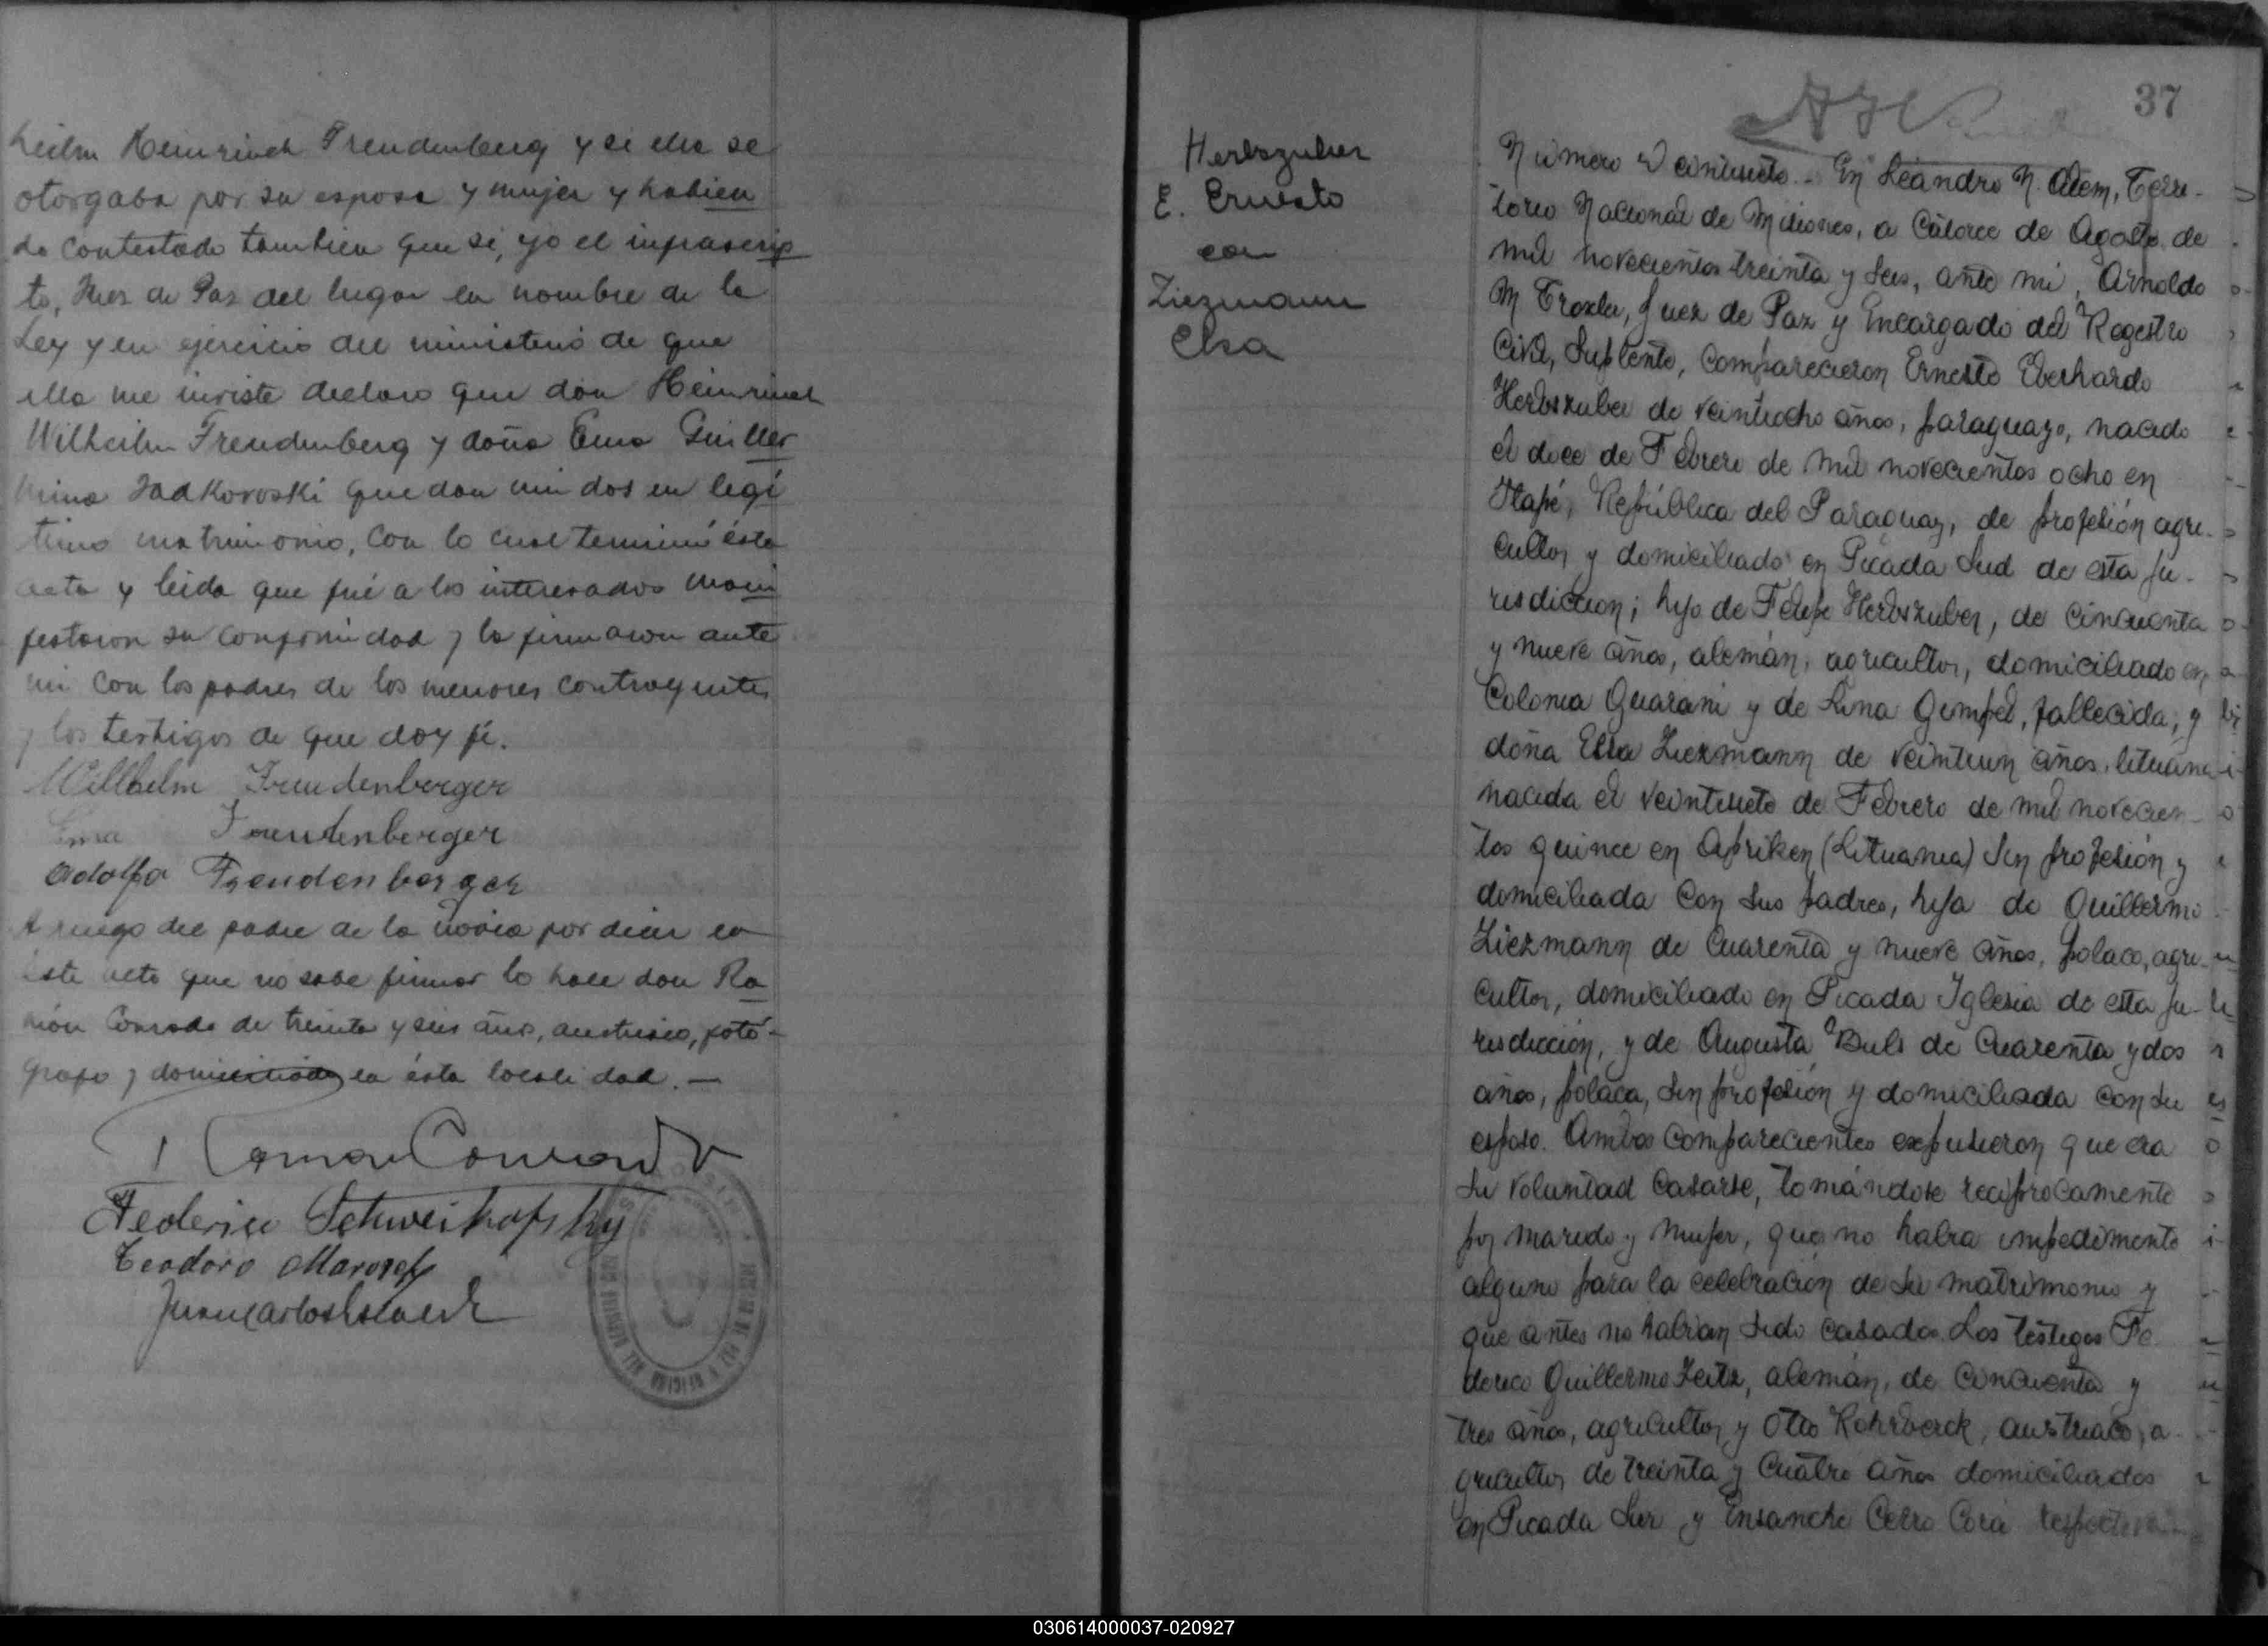 heilm Heinrich Freudenberg y si ella se
otorgaba por su esposa y mujer y habien
do contestado tambien que si, yo el infrascrip
to, Juez de Paz del lugar en nombre de la
Ley y en ejercicio del ministerio de que
ella me inviste declaro que don Heinrich
Wilheilm Freudenberg y doña Ema Guiller
mina Sadkovoski quedan unidos en legí
timo matrimonio, con lo cual terminó ésta
acta y leida que fué a los interesados mani
festaron su conformidad y la firmaron ante
mi con los padres de los menores contrayentes
y los testigos de que doy fé.
Willhelm Freudenberger
Ema Freudenberger
Adolfo Freudenberger
A ruego del padre de la novia por decir en
éste acto que no sabe firmar lo hace don Ra
món Conrado de treinta y seis años, austriaco, fotó-
grafo y domiciliado en ésta localidad. —
Roman Conrad
Federico Schweikofsky
Teodoro
Juan Carlos
37
Herbszuber
E. Ernesto
con
Ziezmann
Elsa
Número Veintisiete.- En Leandro N. Alem, Terri-
torio Nacional de Misiones, a Catorce de Agosto de
mil novecientos treinta y seis, ante mi, Arnoldo
M Troxler, Juez de Paz y Encargado del Registro
Civil, Suplente, comparecieron Ernesto Eberhardo
Herbszuber de veintiocho años, paraguayo, nacido
el doce de Febrero de mil novecientos ocho en
Itapé, República del Paraguay, de profesión agri-
cultor y domiciliado en Picada Sud de esta ju-
risdiccion; hijo de Felipe Herbszuber, de cincuenta
y nueve años, alemán, agricultor, domiciliado en
Colonia Guarani y de Lina Gimpel, fallecida; y
doña Elsa Ziezmann de veintiun años, lituana
nacida el veintisiete de Febrero de mil novecien-
tos quince en Apriken (Lituania) sin profesión y
domiciliada con sus padres, hija de Guillermo
Ziezmann de cuarenta y nueve años, polaco, agri-
cultor, domiciliado en Picada Iglesia de esta ju-
risdiccion, y de Augusta Buls de cuarenta y dos
años, polaca, sin profesión y domiciliada con su
esposo. Ambos comparecientes expusieron que era
su voluntad casarse, tomándose reciprocamente
por marido y mujer, que no habia impedimento
alguno para la celebración de su matrimonio y
que antes no habian sido casados. Los testigos Fe
derico Guillermo Zeitz, alemán, de cincuenta y
tres años, agricultor y Otto Rohrbeck, austriaco, a-
gricultor de treinta y cuatro años domiciliados
en Picada Sur y Ensanche Cerro Corá
030614000037-020927